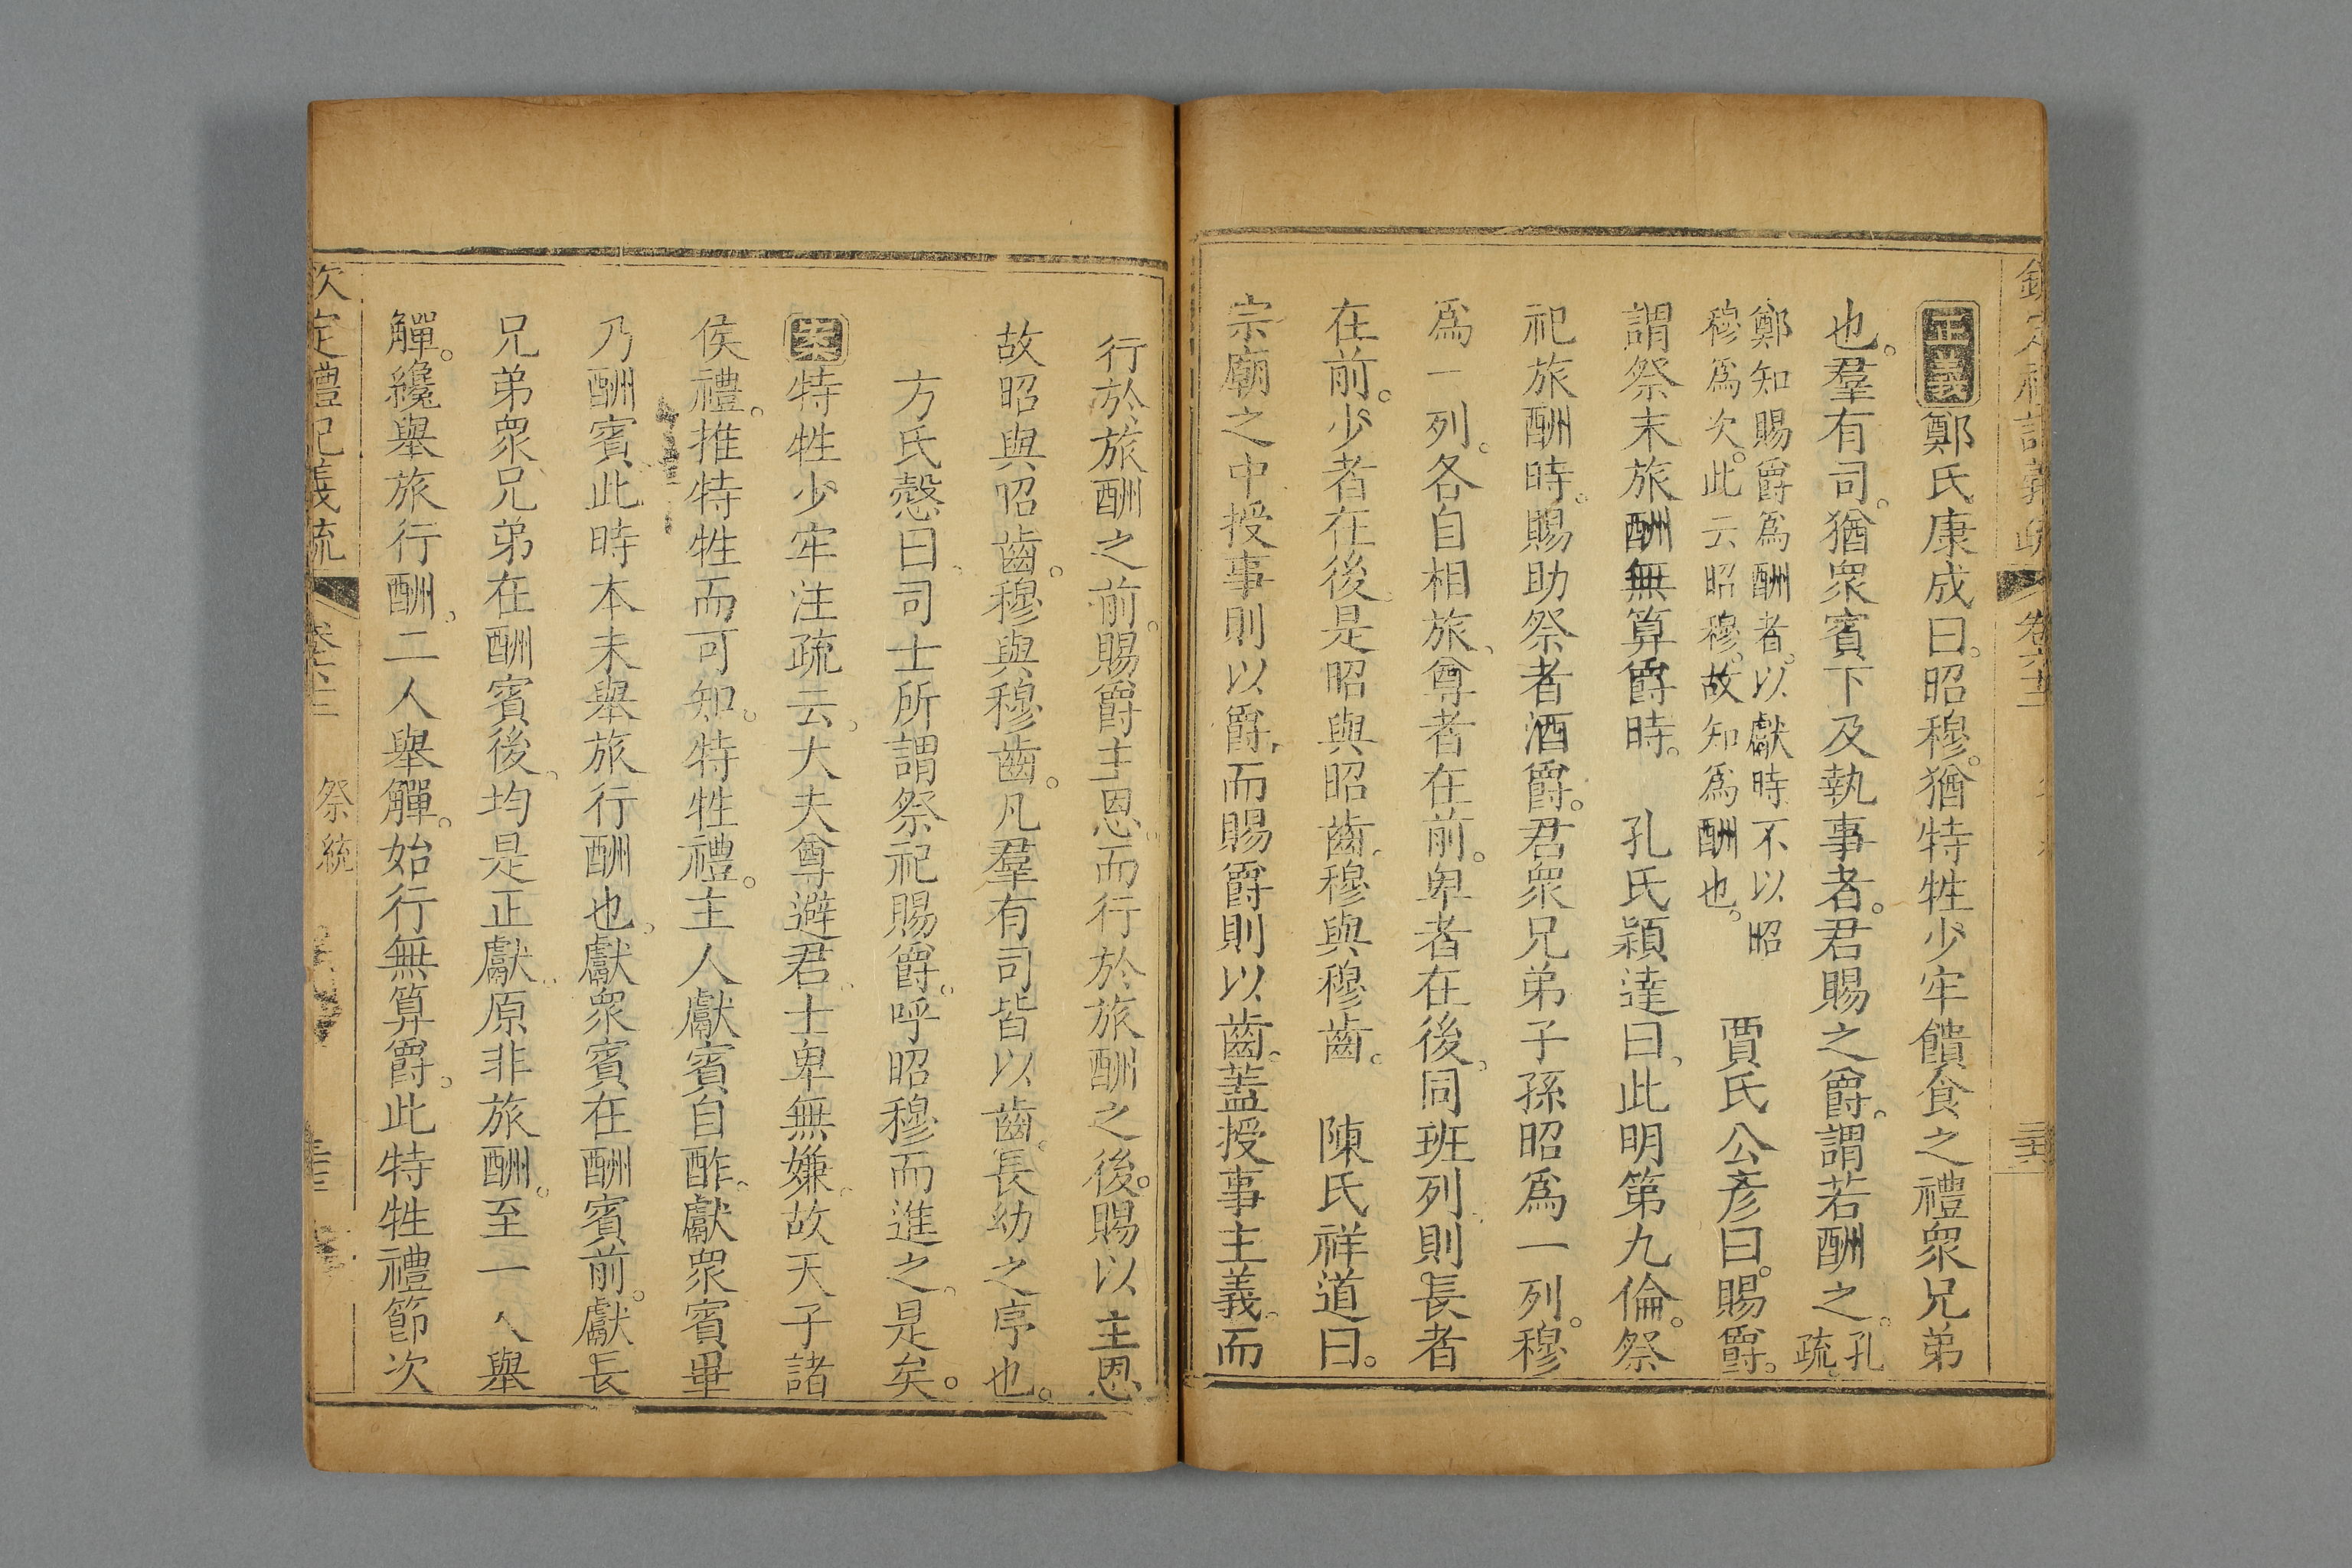 正義鄭氏康成曰。昭穆。猶特牲少牢饋食之禮衆兄弟
也。羣有司。猶衆賓下及執事者。君賜之爵。謂若酬之。孔疏
鄭知賜爵爲酬者。以獻時不以昭
穆爲次。此云昭穆。故知爲酬也。
賈氏公彥曰。賜爵。
謂祭末旅酬無算爵時。 孔氏穎達曰、此明第九倫。祭
祀旅酬時。賜助祭者酒爵。君衆兄弟子孫昭爲一列。穆
爲一列。各自相旅、尊者在前。卑者在後、同班列則長者
在前。少者在後、是昭與昭齒、穆與穆齒。 陳氏祥道曰。
宗廟之中授事則以爵、而賜爵則以齒。蓋授事主義。而
行於旅酬之前。賜爵主恩。而行於旅酬之後。賜以主恩
故昭與昭齒。穆與穆齒。凡羣有司皆以齒。長幼之序也。
方氏慤曰、司士所謂祭祀賜爵。呼昭穆而進之、是矣。
案特牲少牢注疏云、大夫尊避君、士卑無嫌、故天子諸
侯禮。推特牲而可知。特牲禮。主人獻賓自酢、獻衆賓畢
乃酬賓、此時本未舉旅行酬也、獻衆賓在酬賓前。獻長
兄弟衆兄弟在酬賓後、均是正獻、原非旅酬。至一人舉
觶。纔舉旅行酬、二人舉觶。始行無算爵。此特牲禮節次
欽定禮記義疏 卷六十三 祭統